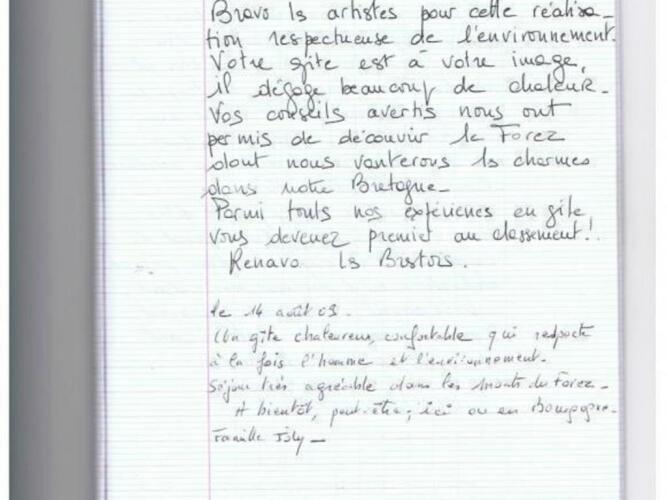 Bravo ls artistes pour cette réalisa_
tion respectueuse de l'environnement.
Votre gîte est à votre image,
il dégage beaucoup de chaleur.
Vos conseils avertis nous ont
permis de découvrir le Forez
dont nous vanterons ls charmes
dans notre Bretagne_
Parmi touts nos expériences en gîte,
vous devenez premier au classement!
ls
le 14 août 09.
Un gîte chaleureux, confortable qui respecte
à la fois l'homme et l'environnement.
Séjour très agréable dans les monts du Forez_
A bientôt, peut-être, ici ou en Bourgogne_
Famille